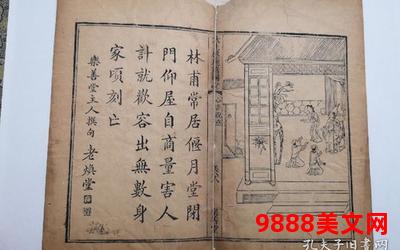 林甫常居偃月堂閉
門仰屋自商量害人
計就歡容出無數身
家頃刻亡
樂善堂主人撰句 老煥堂
9888美文网
孔夫子旧书网